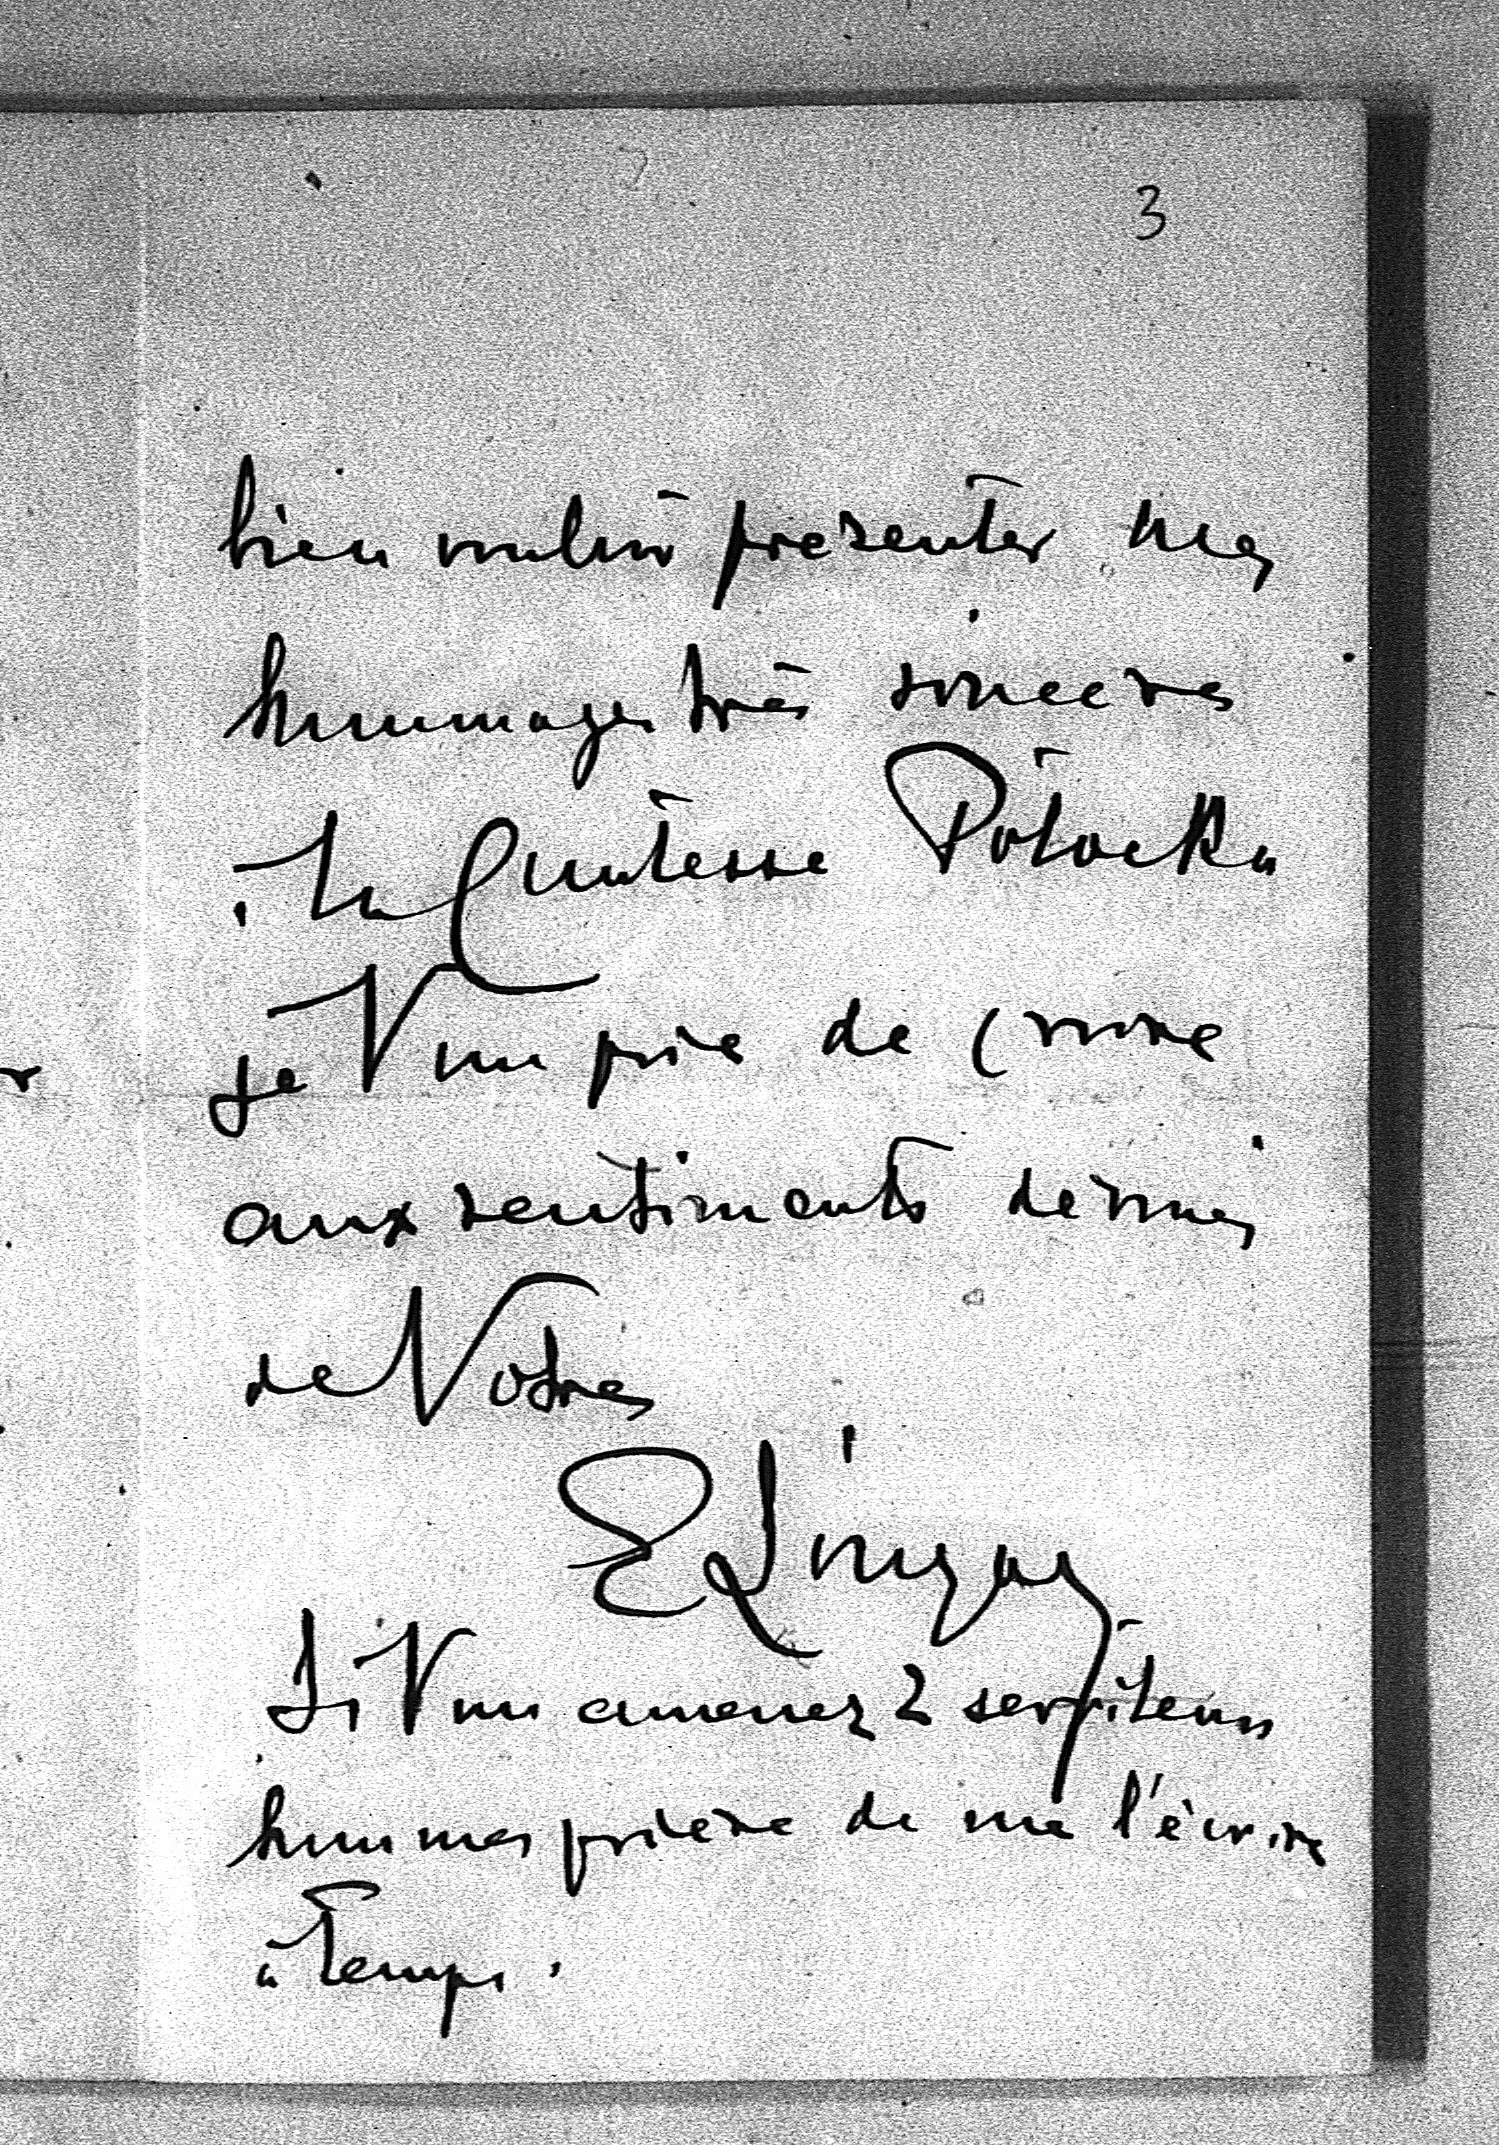 3
bien vouloir présenter mes
hommages très sincères
à la Comtesse Potocka
je Vous prie de croire
aux sentiments dévoués
de Votre
Si Vous amenez 2 serviteurs
hommes prière de me l'écrire
à temps.